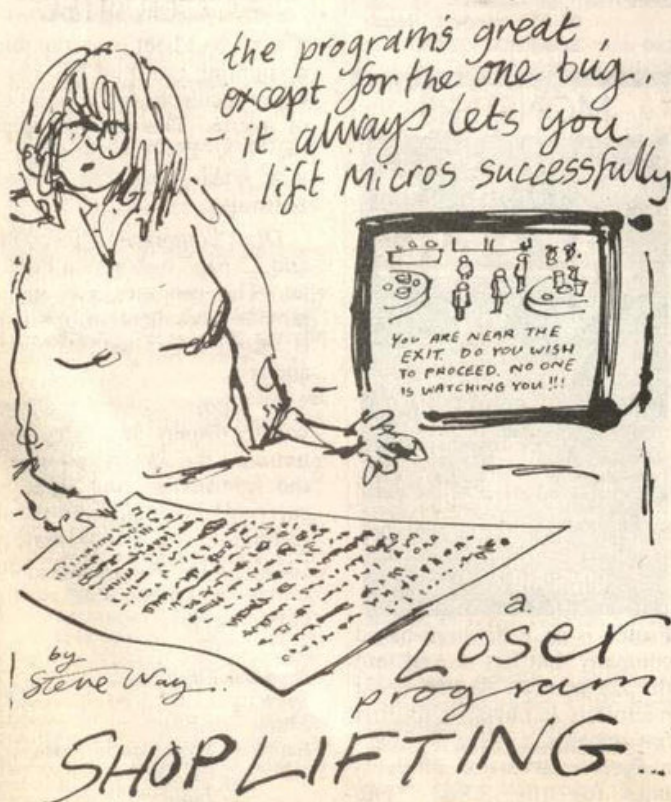 the program's great,
except for the one bug..
- it always lets you
lift Micros successfully
YOU ARE NEAR THE
EXIT. DO YOU WISH
TO PROCEED. NO ONE
IS WATCHING YOU!!!
by
Steve Way.
a
Loser
program
SHOPLIFTING...